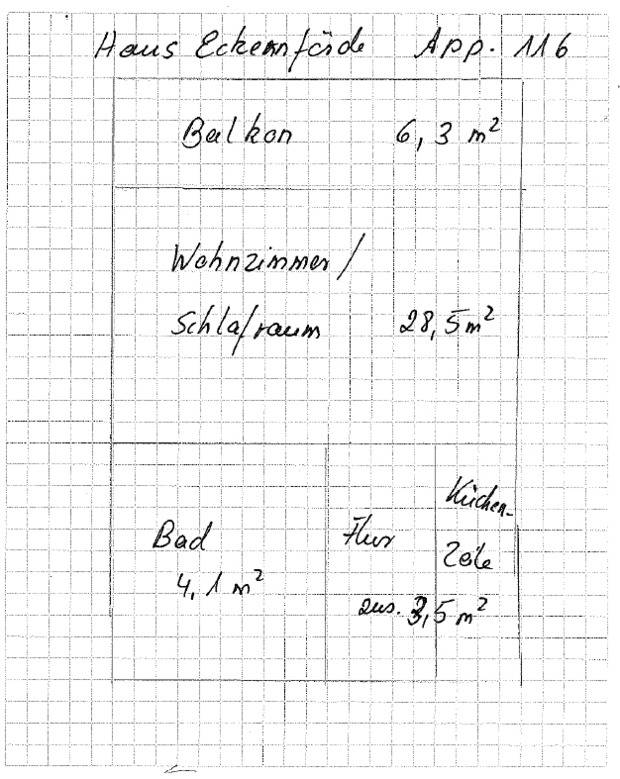 Haus Eckernförde App. 116
Balkon 6,3 m²
Wohnzimmer/
Schlafraum 28,5 m²
Küchen-
Bad Flur Zeile
4,1 m²
zus. 3,5 m²